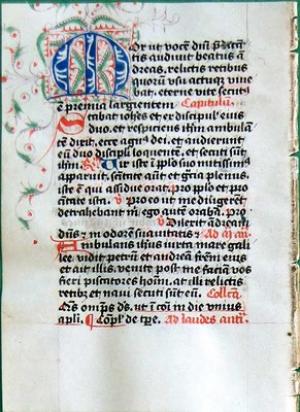 Mox ut vocē dn̄i p̄dican
tis audivit beatus a
dreas. relictis retibus
quorū usu actuqꝫ vive
bat. eterne vite secutus
ē premia largientem Capitulū
Stabat iohēs et ex discipul' eius
duo. et respiciens ihm ambulā
tē dixit. ecce agn' dei. et audierunt
eū duo discipli loquentē. et secuti sūt
ihm. Vir iste ī pplo suo mitissim'
apparuit. sc̄itate aut̄ et gr̄a plenus.
iste ē qui assidue orat. pro pplo et pro
civitate ista. v̄ pro eo ut me diligerēt
detrahebant m̄ ego aut̄ orabā. pro
v̄ Dilexit andreā
dn̄s ꝛ in odorē suavitatis Ad
Ambulans ihus iuxta mare gali
lee. vidit petrū et andreā frēm eius
et ait illis. venite post me faciā vos
fieri piscatores hoīm. at illi relictis
retibꝫ et navi secuti sūt eū. Collcā
Om̄s om̄ps ds. ut ī com̄ in die unius
apli. Cōpl' de tp̄e. Ad laudes ant̄i.